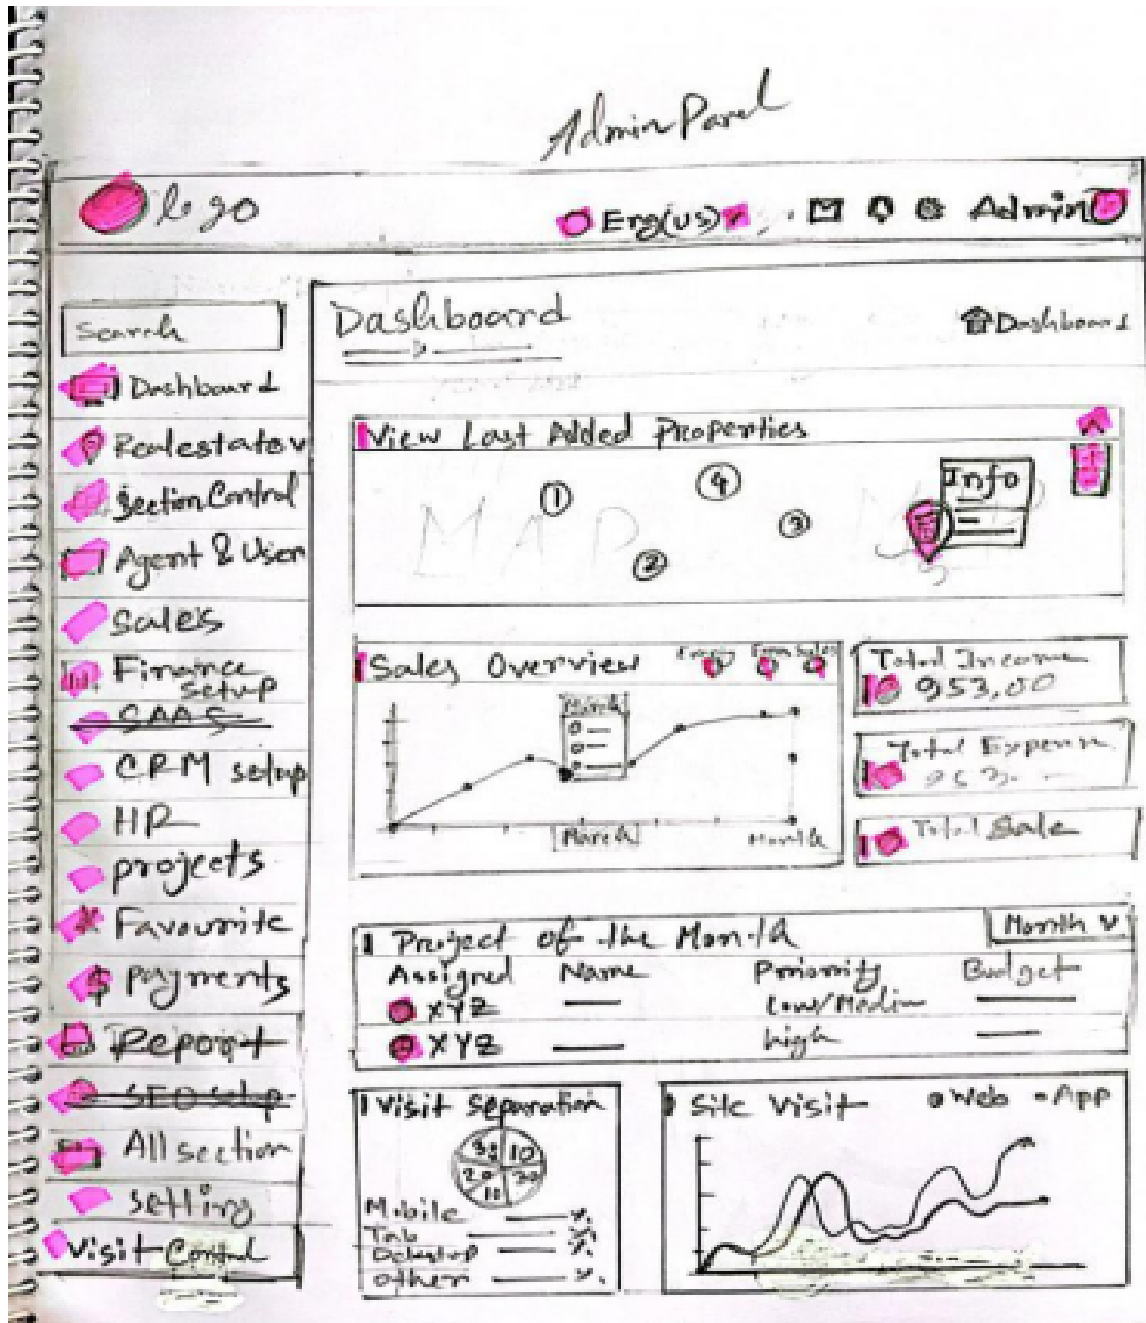 Admin Panel
logo
Eng(us)
Admin
Search
Dashboard
Realestate v
Section Control
Agent & User
Sales
Finance
setup
SAAS
CRM setup
HR
projects
Favourite
$ payments
Report
SEO setup
All section
setting
Visit Control
Dashboard
Dashboard
View Last Added Properties
MAP
1
4
3
2
Info
Sales Overview
Sales
Month
March
Month
Total Income
953,00
Total Expense
953
Total Sale
Project of the Month
Month v
Assigned Name Priority Budget
XYZ Low/Medium
XYZ high
Visit Separation
35 10
20 20
10
Mobile %
Tab %
Dekstop %
other %
Site Visit
Web App